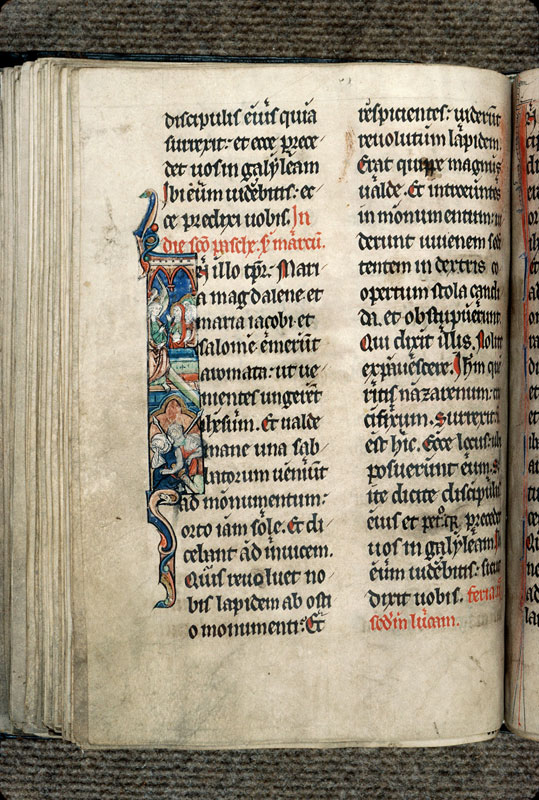 discipulis eius quia
surrexit: et ecce prece
det uos in galyleam
Ibi eum uidebitis: ec
ce predixi uobis. In
die sco pasche. s' marcu.
In illo tpr. Mari
a magdalene et
maria iacobi et
salome emerunt
aromata: ut ue
nientes ungerēt
ihesum. Et ualde
mane una sab
batorum ueniūt
ad monumentum:
orto iam sole. Et di
cebant ad inuicem.
Quis reuoluet no
bis lapidem ab osti
o monumenti: Et
respicientes: uiderūt
reuolutum lapidem.
Erat quippe magnus
ualde. Et introeuntes
in monumentum: ui
derunt iuuenem sedē
tentem in dextris co
opertum stola candi
da. et obstupuerunt.
Qui dixit illis. Nolite
expauescere. Ihm que
ritis nazarenum: cru
cifixum. Surrexit: n
est hic. Ecce locus: ubi
posuerunt eum. S
ite dicite discipulis
eius et petro: qr precedet
uos in galyleam. Ibi
eum uidebitis: sicut
dixit uobis. feria ii
scd'm lucam.